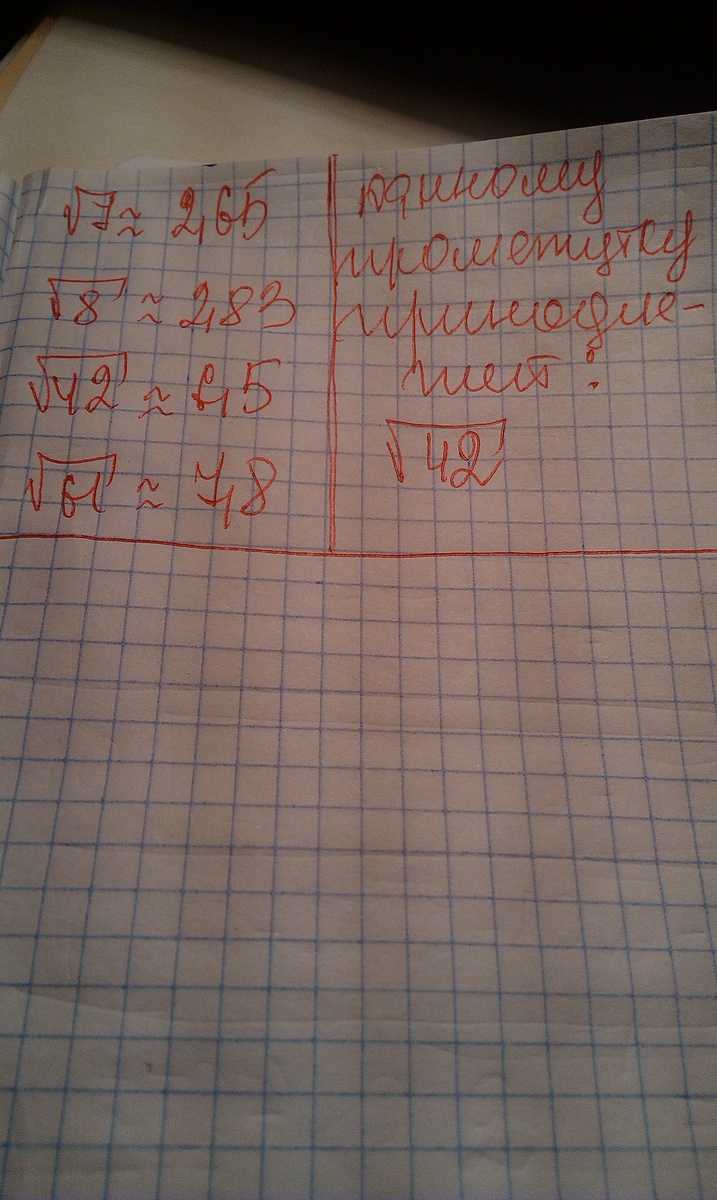 √7 ≈ 2,65
√8 ≈ 2,83
√42 ≈ 6,5
√61 ≈ 7,8
данному
промежутку
принадле-
жит:
√42